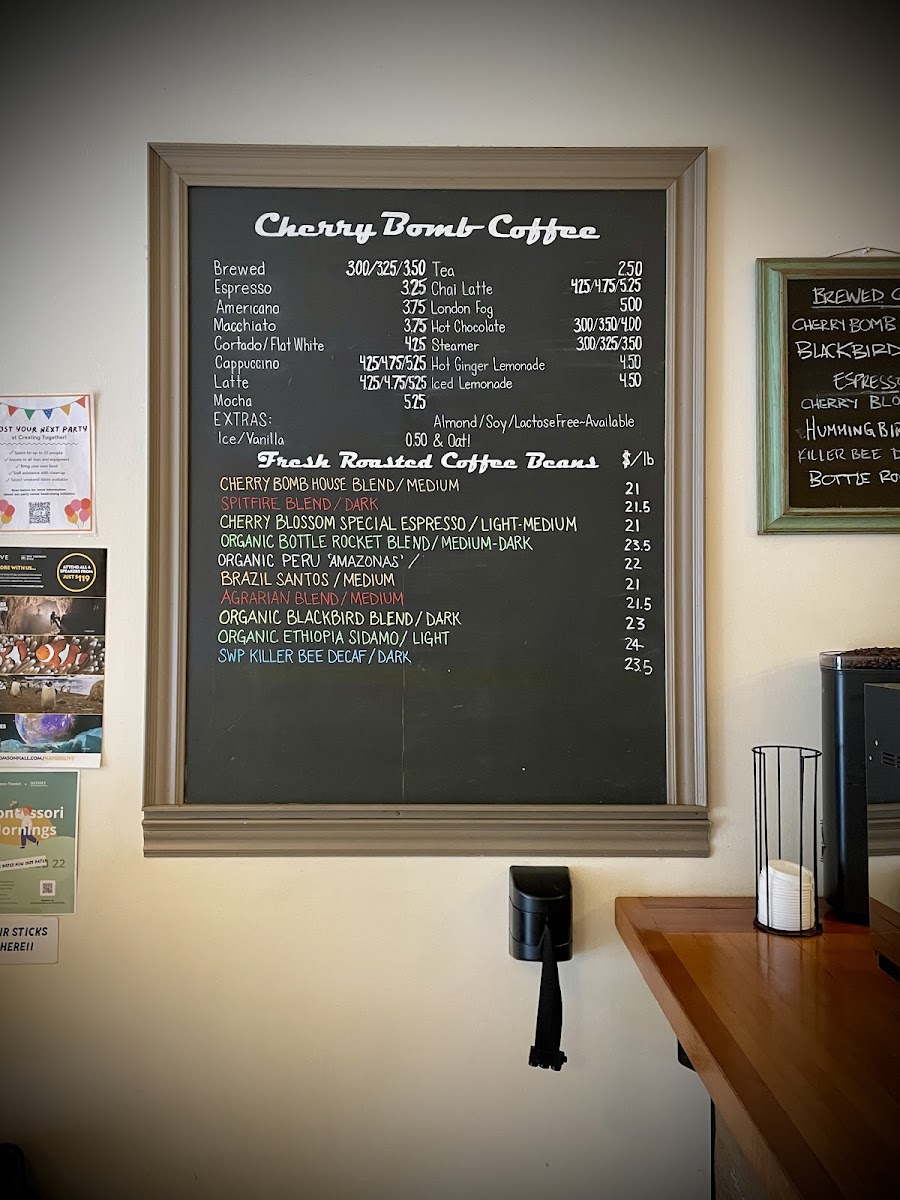 Cherry Bomb Coffee
Brewed 3.00/3.25/3.50 Tea 2.50
Espresso 3.25 Chai Latte 4.25/4.75/5.25
Americano 3.75 London Fog 5.00
Macchiato 3.75 Hot Chocolate 3.00/3.50/4.00
Cortado/Flat White 4.25 Steamer 3.00/3.25/3.50
Cappuccino 4.25/4.75/5.25 Hot Ginger Lemonade 4.50
Latte 4.25/4.75/5.25 Iced Lemonade 4.50
Mocha 5.25
EXTRAS: Almond/Soy/LactoseFree~Available
Ice/Vanilla 0.50 & Oat!
Fresh Roasted Coffee Beans $/lb
CHERRY BOMB HOUSE BLEND/MEDIUM 21
SPITFIRE BLEND/DARK 21.5
CHERRY BLOSSOM SPECIAL ESPRESSO/LIGHT-MEDIUM 21
ORGANIC BOTTLE ROCKET BLEND/MEDIUM-DARK 23.5
ORGANIC PERU 'AMAZONAS' / 22
BRAZIL SANTOS /MEDIUM 21
AGRARIAN BLEND/MEDIUM 21.5
ORGANIC BLACKBIRD BLEND/DARK 23
ORGANIC ETHIOPIA SIDAMO/ LIGHT 24
SWP KILLER BEE DECAF/DARK 23.5
BREWED C
CHERRY BOMB
BLACKBIRD
ESPRESSO
CHERRY BLO
HUMMINGBIR
KILLER BEE D
BOTTLE RO
OST YOUR NEXT PARTY
at Creating Together!
ORE WITH US...
ATTEND ALL 4
SPEAKERS FROM
JUST $119
OMSONHALL.COM/NATGEOLIVE
ontessori
Mornings
22
IR STICKS
HERE!!